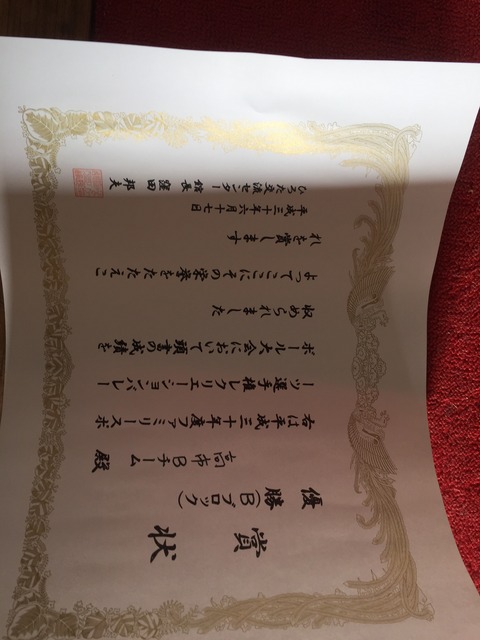 賞状
優勝(Bブロック)
高市Bチーム殿
右は平成三十年度ファミリースポ
ーツ選手権レクリエーションバレー
ボール大会において頭書の成績を
収められました
よってここにその栄誉をたたえこ
れを賞します
平成三十年六月十七日
ひろた交流センター
館長 窪田邦夫